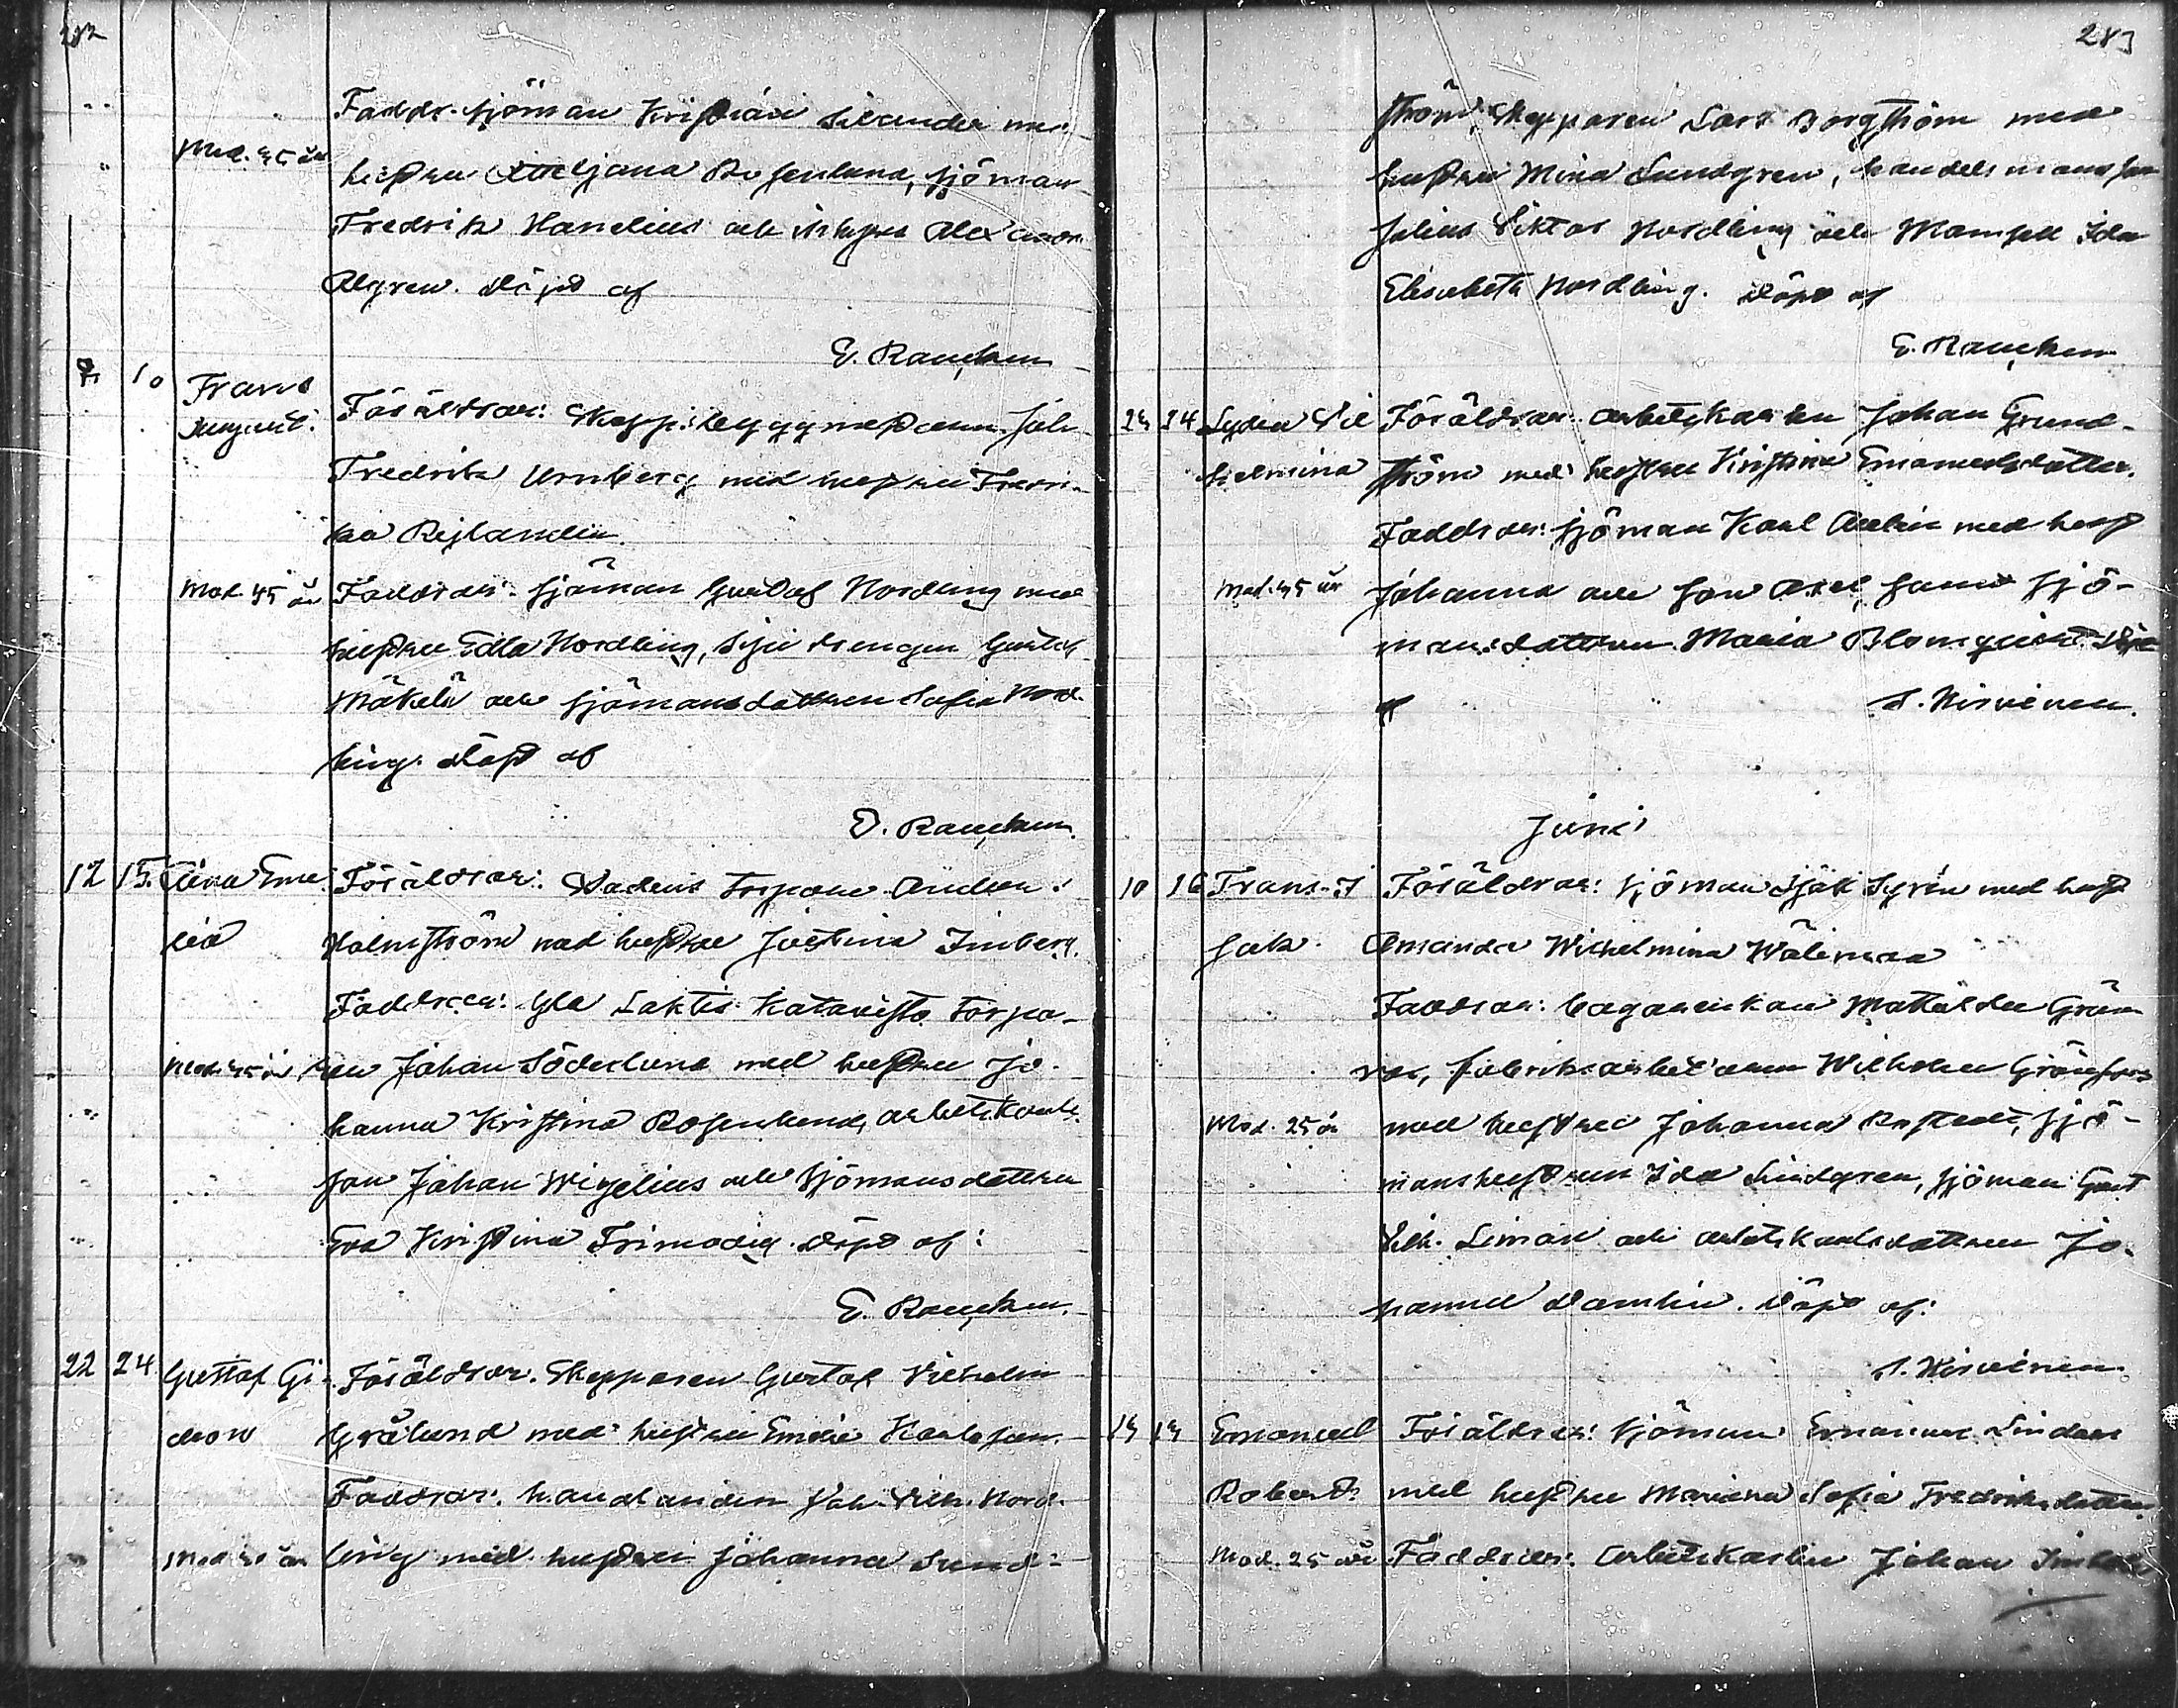 282
Faddr. sjöman Kristian Silander med
Mod. 45 år
hustru Rosenlund, sjöman
Fredrik Hanelius och Alexandr.
Algren. Döpt af
E. Rancken
7 10 Frans
August.
Föräldrar: Skeppsbyggmästaren Joh.
Fredrik Urnberg med hustru Fredri-
ka Rejlander.
Mod. 45 år Faddrar: sjöman Gustaf Nordling med
hustru Edla Nordling, drengen Gustaf
Mäkelä och sjömansdottren Sofia Nord-
ling. Döpt af
E. Rancken.
12 15. Aina Eme- Föräldrar: torpare Anders
lia Holmström med hustru Justina Imberg.
Faddrar: Gla Laktis Katavisto torpa-
Mod. 45 år ren Johan Söderlund med hustru Jo-
hanna Kristina Rosenlund, arbetskarls-
son Johan Wigelius och sjömansdottren
Eva Kristina Frimodig. Döpt af:
E. Rancken.
22 24 Gustaf Gi- Föräldrar. Skepparen Gustaf Vilhelm
deon Grålund med hustru Emelie Karlsson.
Faddrar: handlanden Joh. Vilh. Nord-
Mod. år ling med hustru Johanna Sund-
283
ström, Skepparen Lars Borgström med
hustru Mina Sundgren, handelsmansson
Julius Viktor Nordling och Mamsell Ida
Elisabeth Nordling. Döpt af
E. Rancken
24 24 Lydia Vil- Föräldrar: arbetskarlen Johan Grund-
helmina ström med hustru Kristina Emanuelsdotter.
Faddrar: sjöman Karl Aalin med hust
Mod. 45 år Johanna och son Axel, samt sjö-
mansdottren Maria Blomqvist. Döpt
af S. Hirvinen.
Juni
10 16 Frans I- Föräldrar: sjöman Isak Syrén med hust
sak. Amanda Wilhelmina Wälimaa
Faddrar: bagarenkan Mathilda Grön-
ros, fabriksarbetaren Wilhelm Grönfors
Mod. 25 år med hustru Johanna Rostedt, sjö-
manshustrun Ida Lindgren, sjöman Gust
Vilh. Liman och arbetskarlsdottren Jo-
hanna Damlin. Döpt af:
S. Hirvinen.
14 19 Emanuel Föräldrar: sjöman Emanuel Lindan
Robert. med hustru Mariana Sofia Fredriksdotter.
Mod. 25 år Faddrar: Arbetskarlen Johan